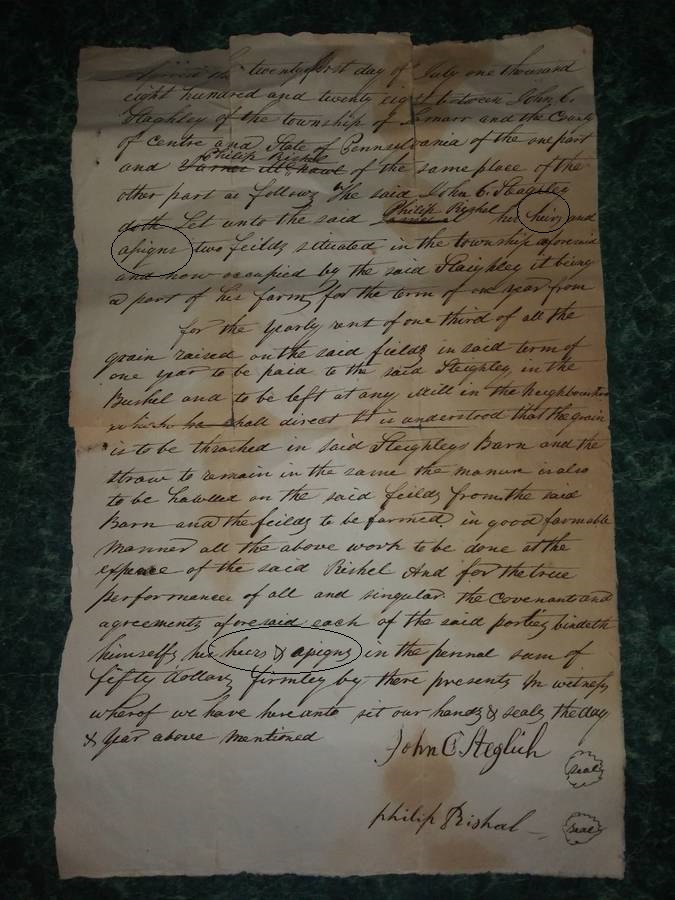 the twenty first day of July one thousand
eight hundred and twenty eight between John C.
Staghley of the township of Lamarr and the County
of centre and State of Pennsylvania of the one part
Philip Rishel
and of the same place of the
other part as follows The said John C. Steagley
Philip Rishel
doth Let unto the said his heirs and
assigns two feilds situated in the township aforesaid
and now occupied by the said Staighley it being
a part of his farm for the term of one year from
for the yearly rent of one third of all the
grain raised on the said fields in said term of
one year to be paid to the said Steighley in the
Bushel and to be left at any Mill in the Neighbourhood
which he shall direct it is understood that the grain
is to be thrashed in said Steighleys Barn and the
straw to remain in the same the manure is also
to be hawled on the said feilds from the said
Barn and the feilds to be farmed in good farmable
manner all the above work to be done at the
expence of the said Rishel And for the true
performance of all and singular the Covenants and
agreements aforesaid each of the said parties bindeth
himselfs his heirs & assigns in the pennal sum of
fifty dollars firmley by there presents In witness
wherof we have hereunto sit our hands & seals the day
& year above mentioned
John C Steglich
seal
philip Rishal
seal